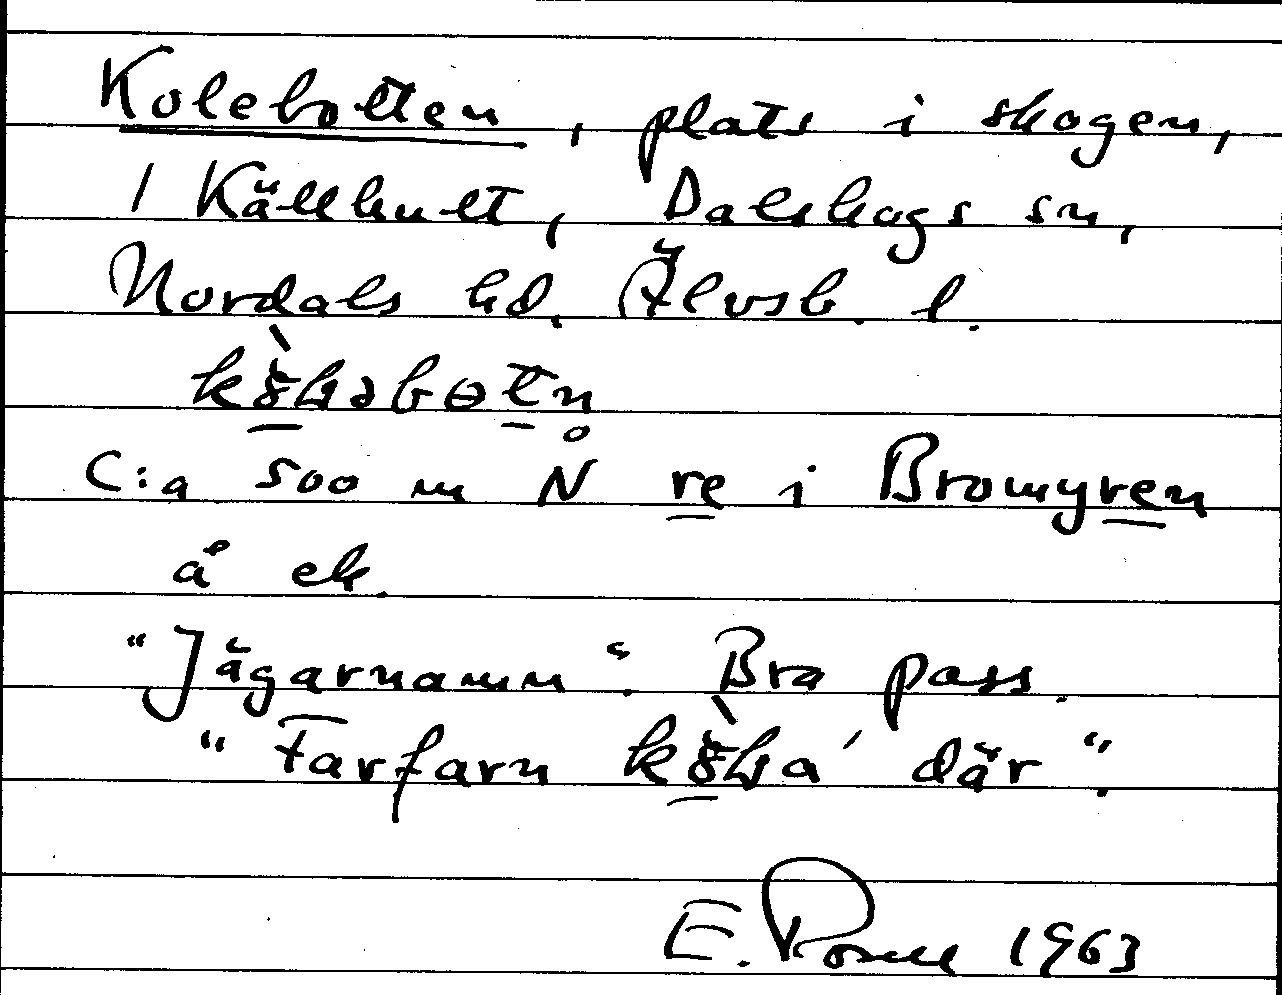 Kolebotten, plats i skogen,
1 Källhult, Dalskogs sn,
Nordals hd. Älvsb. l.
C:a 500 m N re i Bromyren
å ek.
"Jägarnamn". Bra pass.
"Farfarn där".
E. 1963